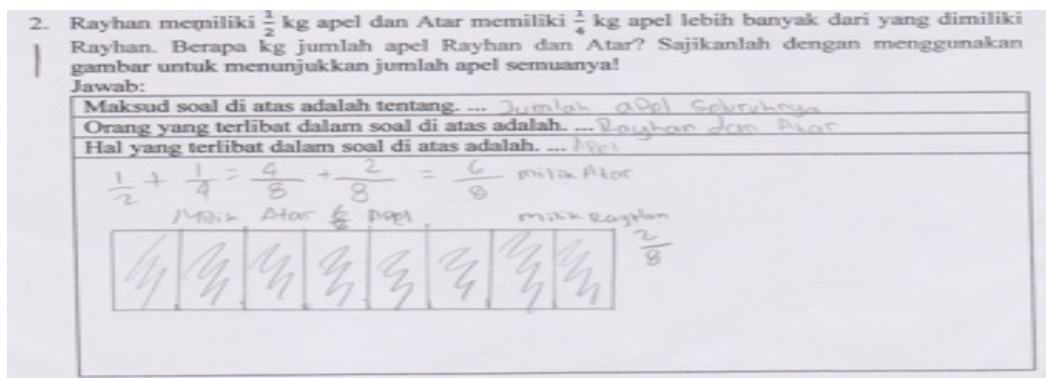 2. Rayhan memiliki 1/2 kg apel dan Atar memiliki 1/4 kg apel lebih banyak dari yang dimiliki
Rayhan. Berapa kg jumlah apel Rayhan dan Atar? Sajikanlah dengan menggunakan
gambar untuk menunjukkan jumlah apel semuanya!
Jawab:
Maksud soal di atas adalah tentang. ... Jumlah apel seluruhnya
Orang yang terlibat dalam soal di atas adalah. ... Rayhan dan Atar
Hal yang terlibat dalam soal di atas adalah. ... Apel
1/2 + 1/4 = 4/8 + 2/8 = 6/8 milik Atar
Milik Atar Apel milik Rayhan
2/8